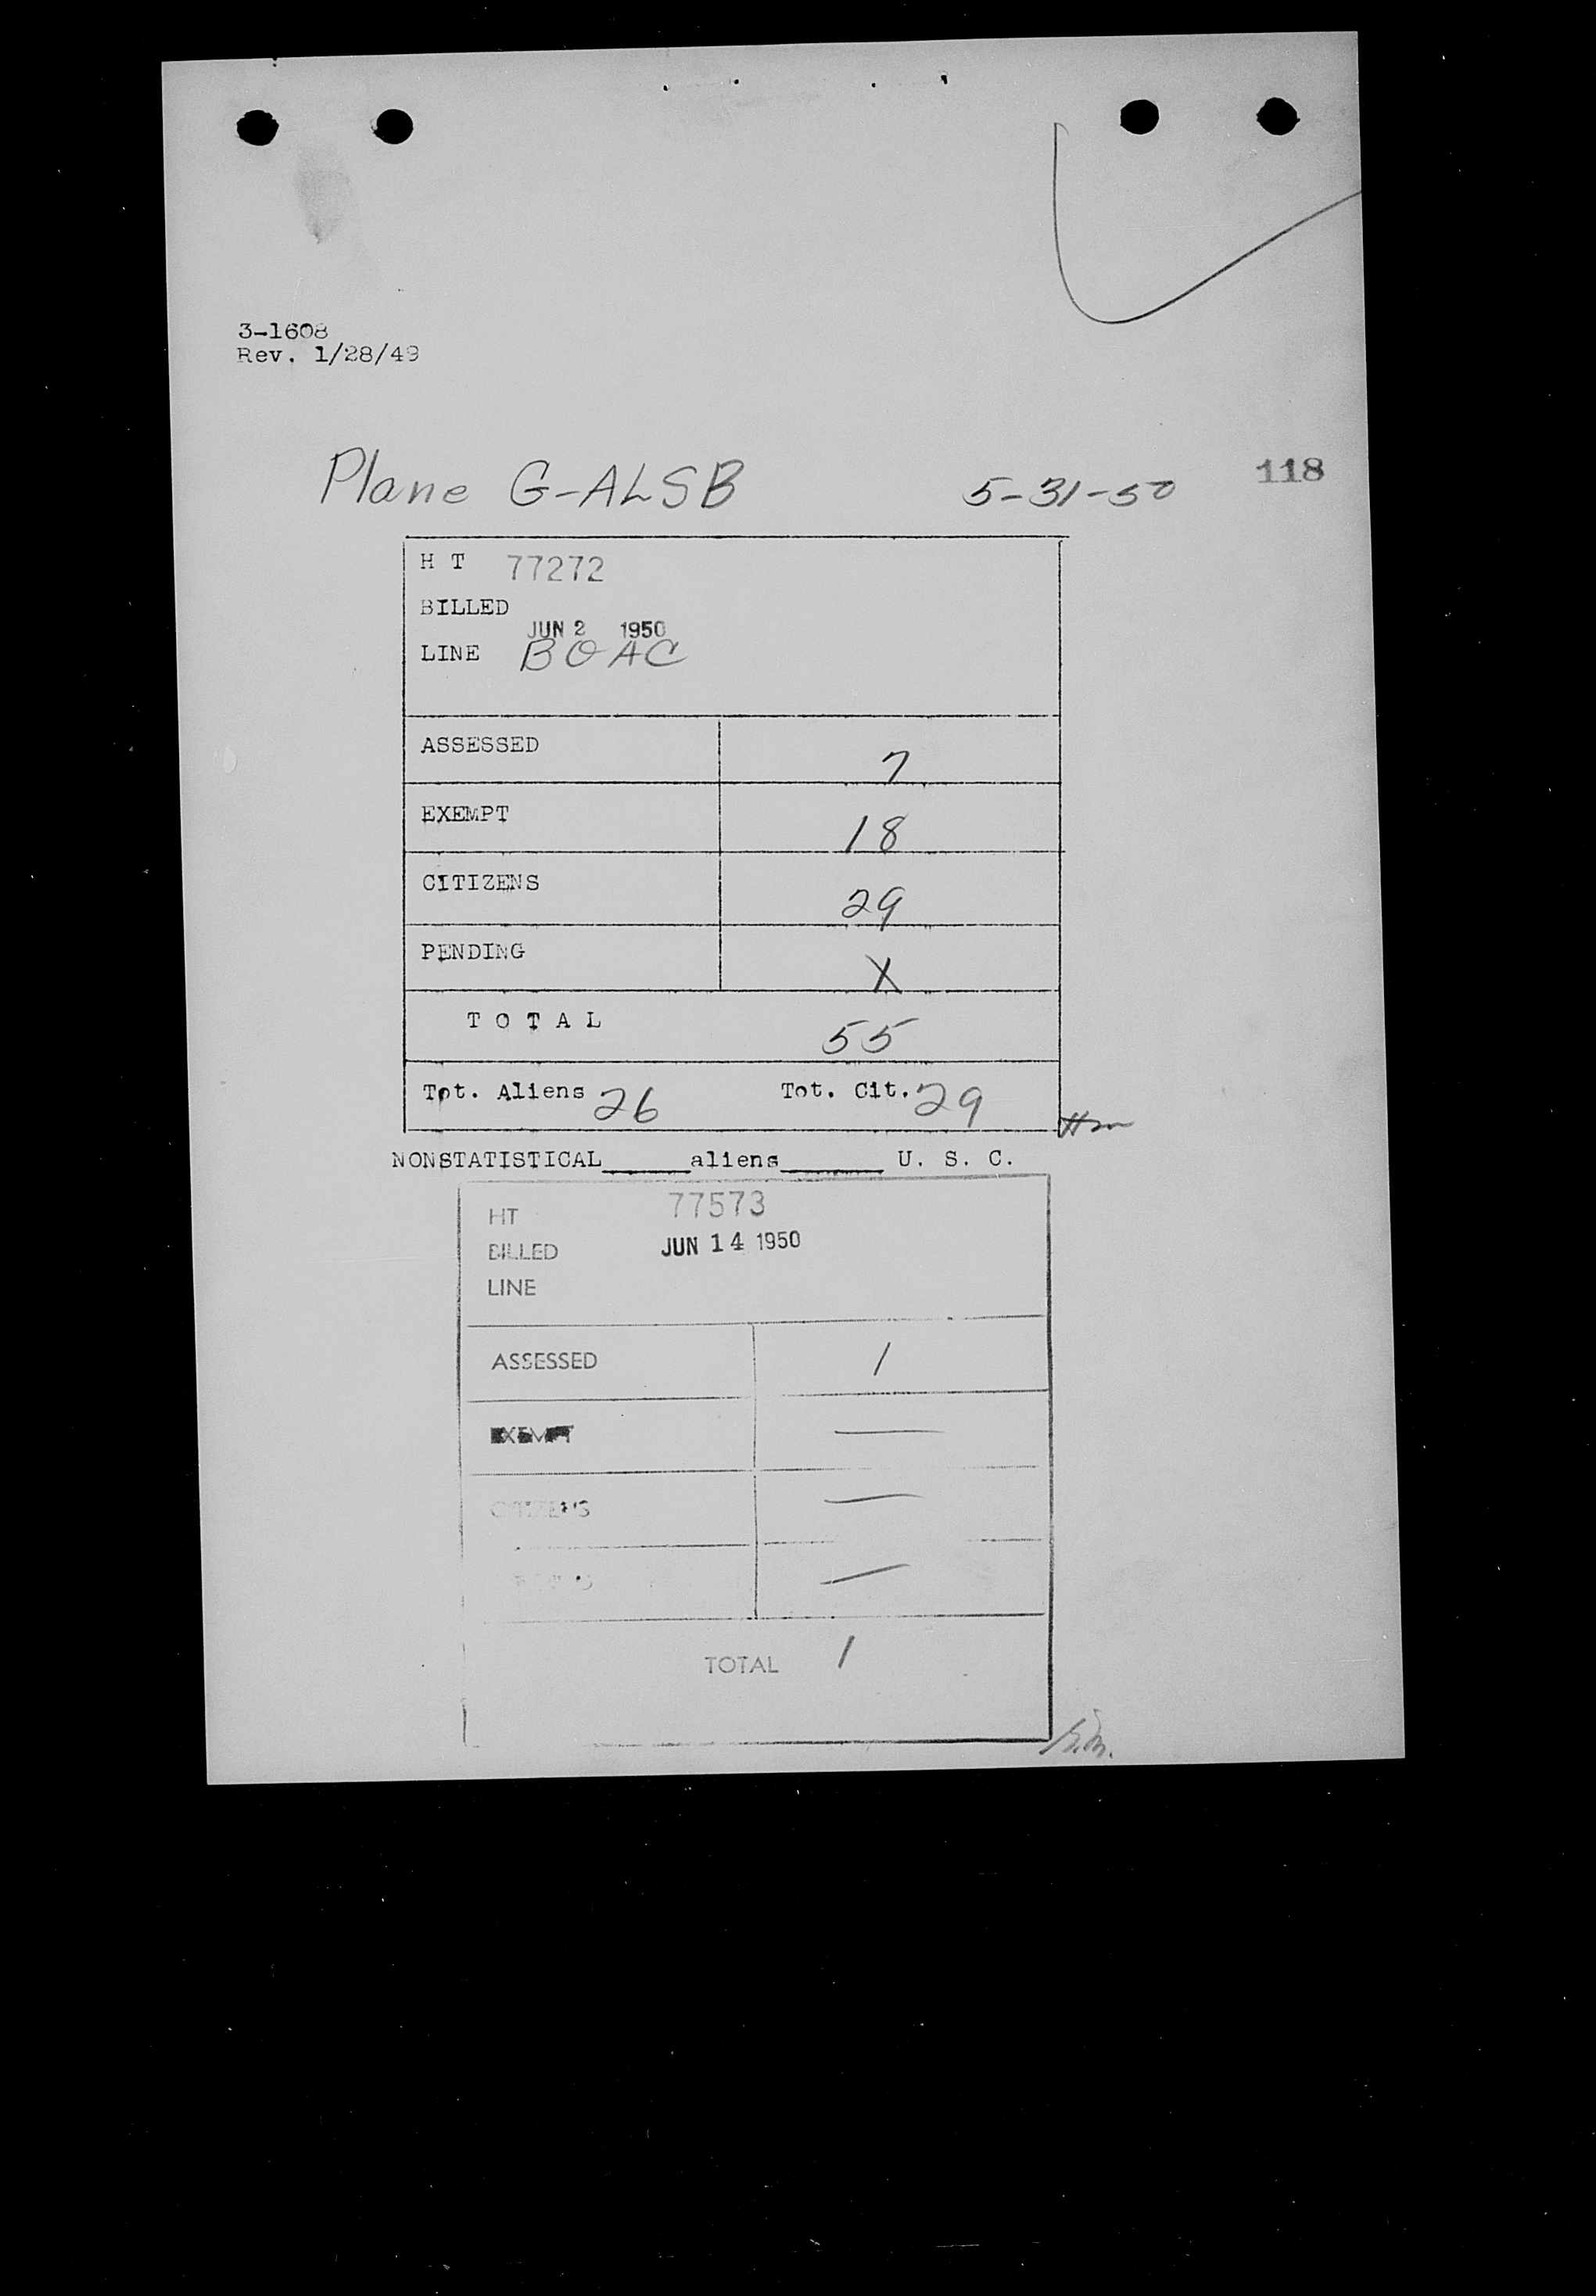 3-1608
Rev. 1/28/49
Plane G-ALSB 5-31-50 118
H T 77272
BILLED
JUN 2 1950
LINE BOAC
ASSESSED 7
EXEMPT 18
CITIZENS 29
PENDING X
TOTAL 55
Tot. Aliens 26 Tot. Cit. 29
NONSTATISTICAL______aliens_______ U. S. C.
HT 77573
BILLED JUN 14 1950
LINE
ASSESSED 1
EXEMPT —
CITIZENS —
—
TOTAL 1